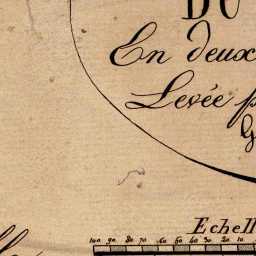 DU
En deux
Levée p
Echell
100 90 80 70 60 50 40 30 20 10